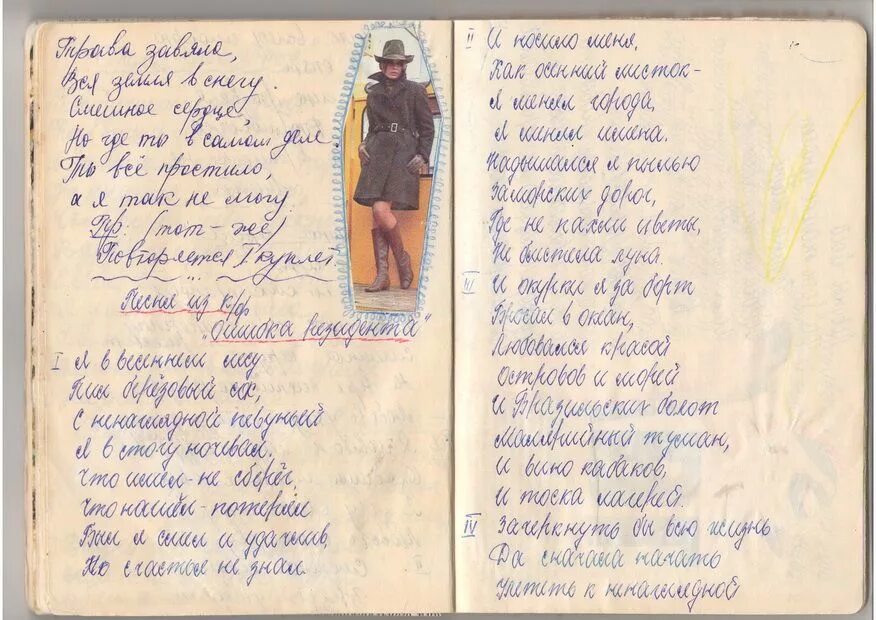 Трава завяла,
Вся земля в снегу.
Смешное сердце,
Но где ты в самом деле
Ты всё простило,
а я так не могу.
Пр: (тот - же)
Повторяется I куплет.
Песня из к/ф
"Ошибка резидента"
I Я в весеннем лесу
Пил берёзовый сок,
С ненаглядной певуньей
Я в стогу ночевал.
Что имел - не сберёг,
Что нашёл - потерял
Был я смел и удачлив,
Но счастья не знал.
II И носило меня,
Как осенний листок -
Я менял города,
Я менял имена.
Надышался я пылью
Заморских дорог,
Где не пахли цветы,
Не блистела луна.
III И окурки я за борт
Бросал в океан,
Любовался красой
Островов и морей
И Бразильских болот
Малярийный туман,
И вино кабаков,
И тоска лагерей.
IV Зачеркнуть бы всю жизнь
Да сначала начать
Улететь к ненаглядной